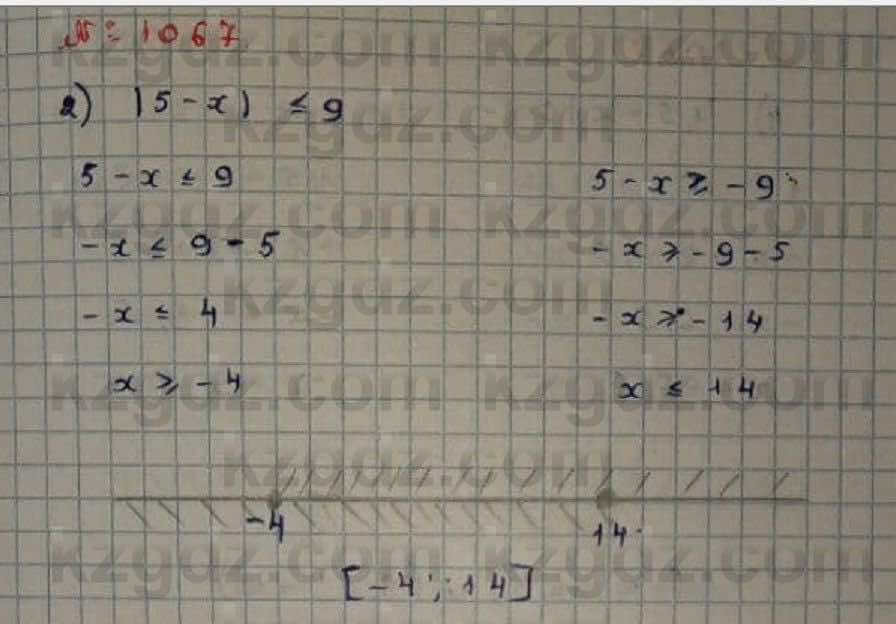 № 1067
2) |5 - x| ≤ 9
5 - x ≤ 9
5 - x ≥ - 9
- x ≤ 9 - 5
- x ≥ - 9 - 5
- x ≤ 4
- x ≥ - 14
x ≥ - 4
x ≤ 14
-4 14
[-4; 14]
kzgdz.com kzgdz.com
kzgdz.com
kzgdz.com kzgdz.com
kzgdz.com
kzgdz.com kzgdz.com
kzgdz.com
kzgdz.com kzgdz.com